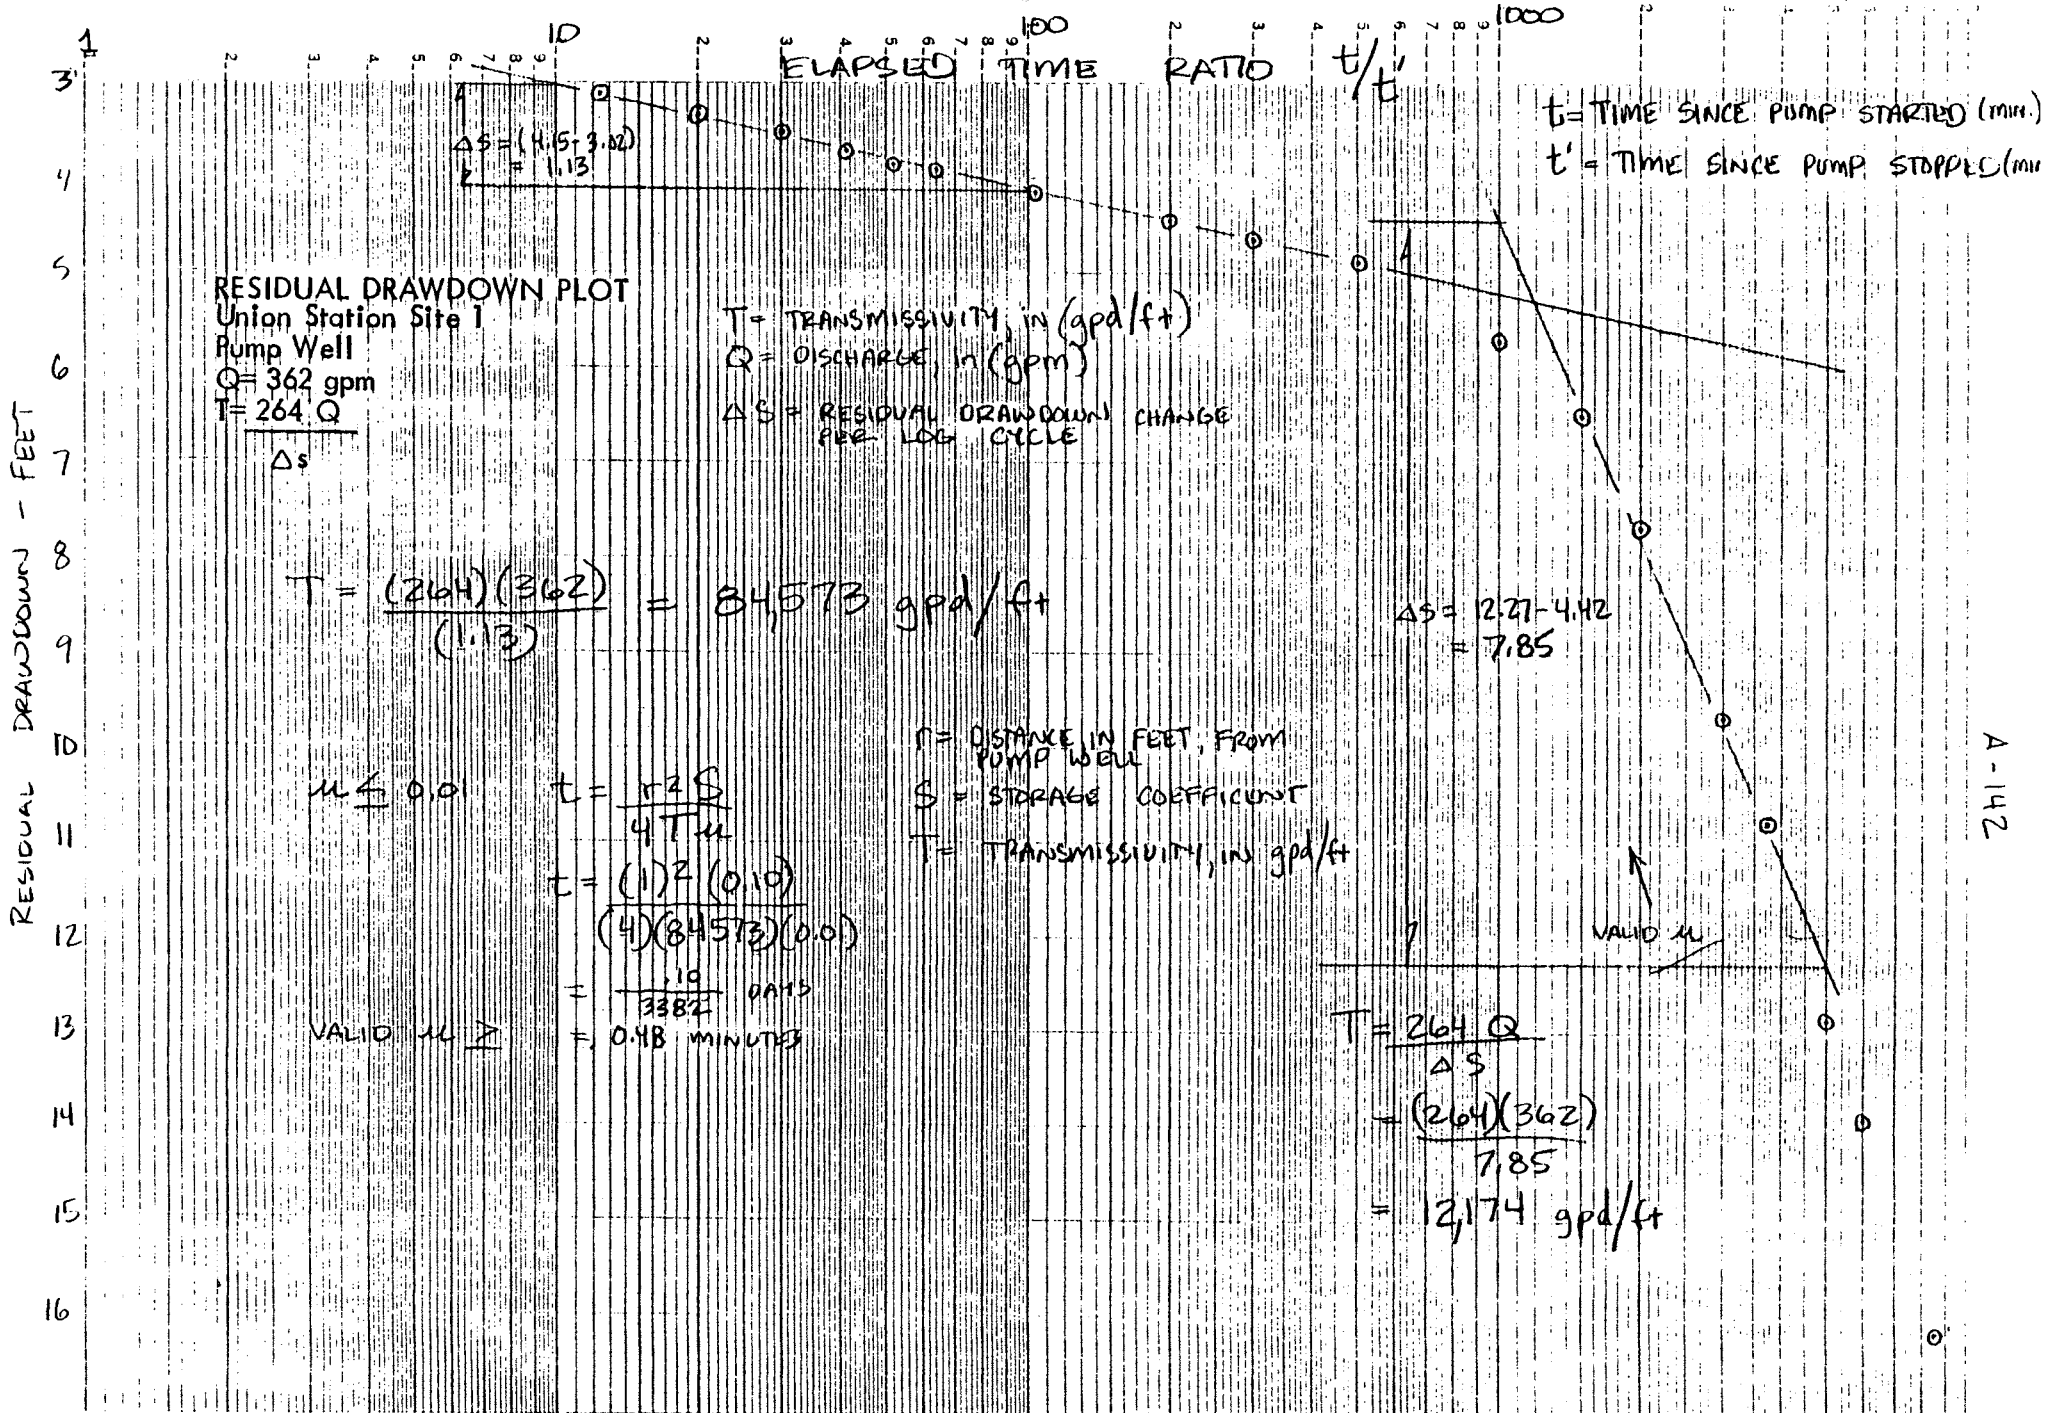 1 10 100 1000
2 3 4 5 6 7 8 9 2 3 4 5 6 7 8 9 2 3 4 5 6 7 8 9 2
ELAPSED TIME RATIO t/t'
t = TIME SINCE PUMP STARTED (min.)
t' = TIME SINCE PUMP STOPPED (min
3'
4
5
6
7
8
9
10
11
12
13
14
15
16
RESIDUAL DRAWDOWN - FEET
ΔS = (4.15-3.02)
= 1.13
RESIDUAL DRAWDOWN PLOT
Union Station Site 1
Pump Well
Q= 362 gpm
T= 264 Q
Δs
T = TRANSMISSIVITY, in (gpd/ft)
Q = DISCHARGE, in (gpm)
ΔS = RESIDUAL DRAWDOWN CHANGE
PER LOG CYCLE
T = (264)(362) = 84,573 gpd/ft
(1.13)
ΔS = 12.27-4.42
= 7.85
r = DISTANCE, IN FEET, FROM
PUMP WELL
S = STORAGE COEFFICIENT
T = TRANSMISSIVITY, IN gpd/ft
u ≤ 0.01 t = r² S
4 T u
t = (1)² (0.10)
(4)(84573)(0.01)
= .10 DAYS
3382
VALID u ≥ = 0.48 MINUTES
VALID u
T = 264 Q
Δ S
= (264)(362)
7.85
= 12,174 gpd/ft
A-142